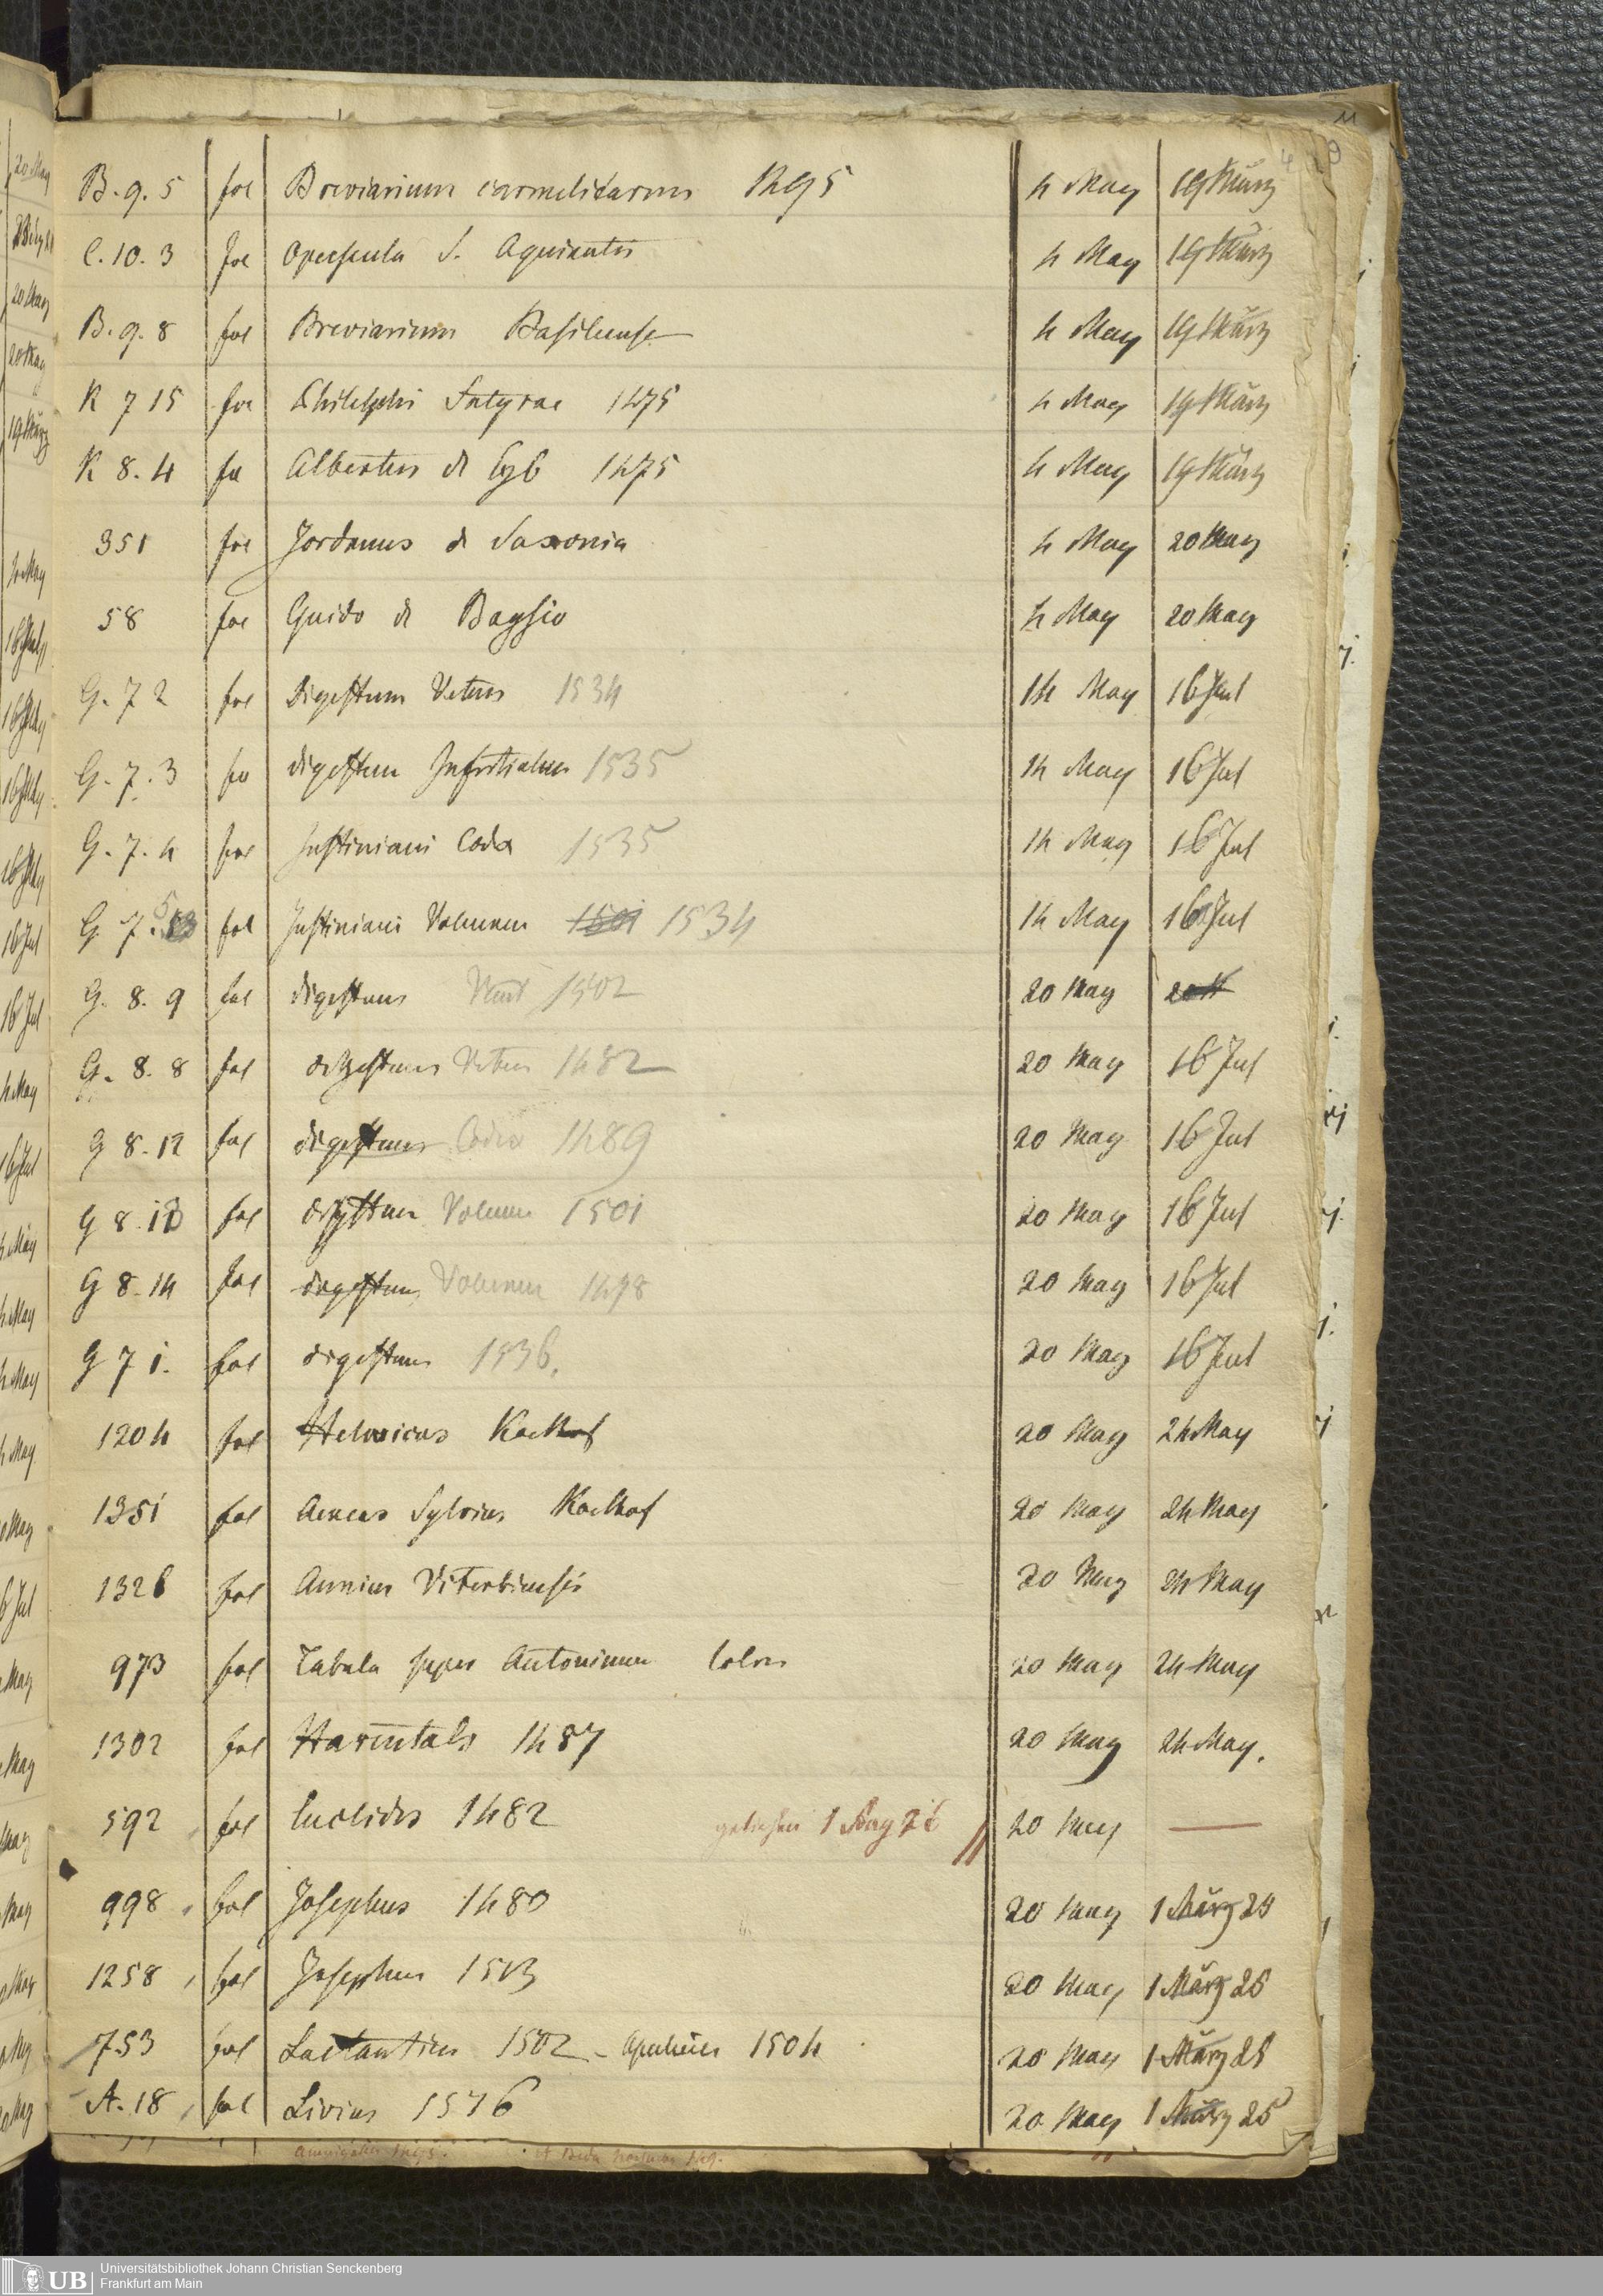 B. 9. 5 fol Breviarium carmelitarum 1495 4 May 19 März
C. 10. 3 fol Opuscula S. Aquinatis 4 May 19 März
B. 9. 8 fol Breviarium Basileense 4 May 19 März
K 7 15 fol Philelphi Satyrae 1475 4 May 19 März
K 8. 4 fol Albertus de Eyb 1475 4 May 19 März
351 fol Jordanus de Saxonia 4 May 20 May
58 fol Guido de Baysio 4 May 20 May
G. 7 2 fol Digestum Vetus 1534 14 May 16 Jul
G. 7. 3 fol digestum Infortiatum 1535 14 May 16 Jul
G. 7. 4 fol Justiniani Codex 1535 14 May 16 Jul
G 7. 5 fol Justiniani Volumen 1501 1534 14 May 16 Jul
G. 8. 9 fol digestum 1502 20 May
G. 8. 8 fol digestum Vetus 1482 20 May 16 Jul
G 8. 12 fol digestum Codex 1489 20 May 16 Jul
G 8. 13 fol digestum Volumen 1501 20 May 16 Jul
G 8. 14 fol digestum Volumen 1498 20 May 16 Jul
G 7 1. fol digestum 1536. 20 May 16 Jul
1204 fol Helvicus Koelhof 20 May 24 May
1351 fol Aeneas Sylvius Koelhof 20 May 24 May
1326 fol Annius Viterbiensis 20 May 24 May
973 fol Tabula super Antoninum Colon 20 May 24 May
1302 fol Harentals 1487 20 May 24 May.
592 fol Euclides 1482 geliehen 1 Aug 26 20 May —
998 fol Josephus 1480 20 May 1 März 28
1258 fol Josephus 1513 20 May 1 März 28
753 fol Lactantius 1502 - Apuleius 1504 20 May 1 März 28
A. 18 fol Livius 1546 20 May 1 März 25
Universitätsbibliothek Johann Christian Senckenberg
Frankfurt am Main
UB